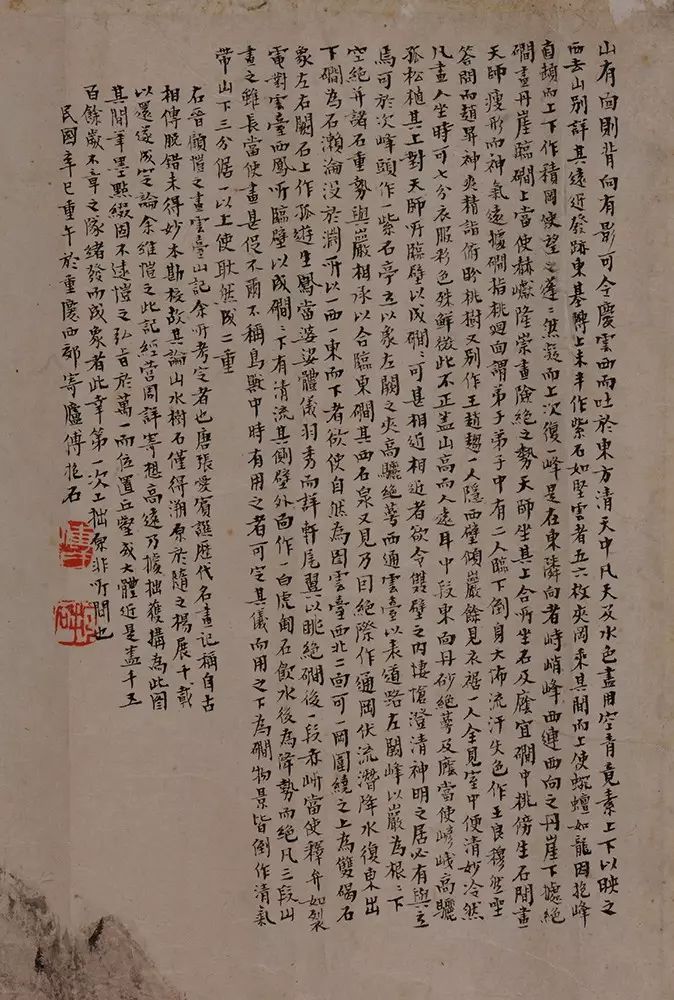 山有面則背向有影可令慶雲西而吐於東方清天中凡天及水色盡用空青竟素上下以映之
西去山別詳其遠近發跡東基轉上未半作紫石如堅雲者五六枚夾岡乘其間而上使蜿蟺如龍因抱峰
直頓而上下作積岡使望之蓬蓬然凝而上次復一峰是石東隣向者峙峭峰西連西向之丹崖下據絕
磵畫丹崖臨磵上當使赫巘隆崇畫險絕之勢天師坐其上合所坐石及廕宜磵中桃傍生石間畫
天師瘦形而神氣遠據磵指桃廻面謂弟子弟子中有二人臨下倒身大怖流汗失色作王良穆然坐
答問而趙昇神爽精詣俯盼桃樹又別作王趙趨一人隱西壁傾巖餘見衣裾一人全見室中使清妙冷然
凡畫人坐時可七分衣服彩色殊鮮微此不正蓋山高而人遠耳中段東面丹砂絕萼及廕當使嵃峨高驪
孤松植其上對天師所臨壁以成磵磵可甚相近相近者欲令雙壁之內悽愴澄清神明之居必有與立
焉可於次峰頭作一紫石亭立以象左闕之夾高驪絕萼西通雲臺以表道路左闕峰以巖為根根下
空絕并諸石重勢巖相承以合臨東磵其西石泉又見乃因絕際作通岡伏流潛降水復東出
下磵為石瀨淪沒於淵所以一西一東而下者欲使自然為圖雲臺西北二面可一岡圍繞之上為雙碣石
象左右闕石上作孤遊生鳳當婆娑體儀羽秀而詳軒尾翼以眺絕磵後一段赤岓當使釋弁如裂
電對雲臺西鳳所臨壁以成磵磵下有清流其側壁外面作一白虎匍石飲水後為降勢而絕凡三段山
畫之雖長當使畫甚促不爾不稱鳥獸中時有用之者可定其儀而用之下為磵物景皆倒作清氣
帶山下三分倨一以上使耿然成二重
右晉顧愷之畫雲臺山記余所考定者也唐張愛賓譔歷代名畫記稱自古
相傳脫錯未得妙本勘校故其論山水樹石僅得溯原於隨之楊展千載
以還遂成定論余維愷之此記經營周詳寄想高遠乃據拙獲搆為此圖
其間筆墨點綴因不逮愷之弘旨於萬一而位置丘壑或大體近是蓋千五
百餘歲不章之隊緒發而成象者此幸第一次工拙原非所問也
民國辛巳重午於重慶西郊寄廬傅抱石